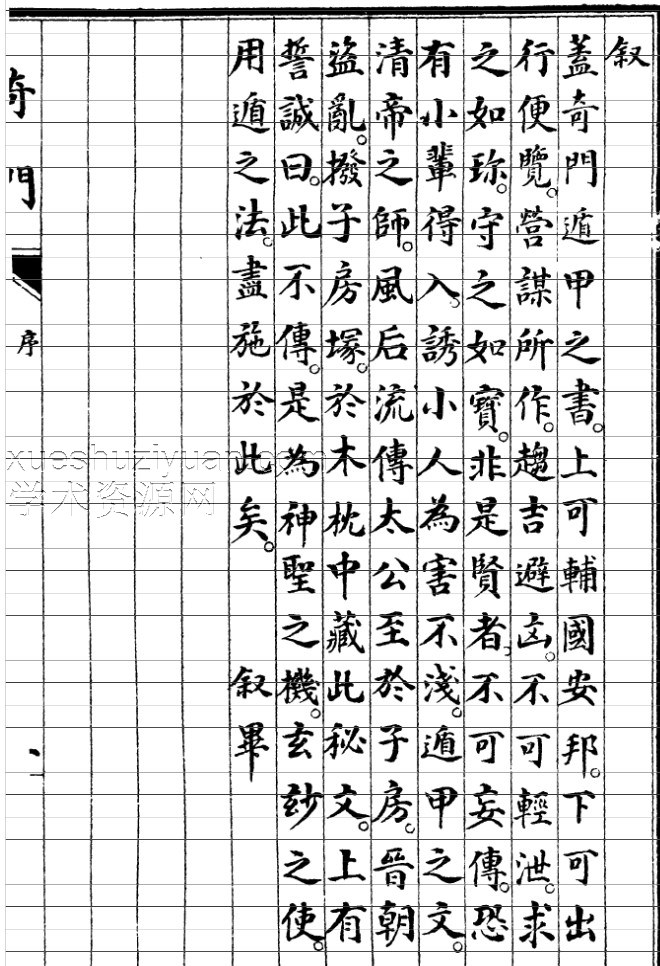 叙
蓋奇門遁甲之書。上可輔國安邦。下可出
行便覽。營謀所作。趨吉避凶。不可輕泄。求
之如珎。守之如寶。非是賢者。不可妄傳。恐
有小輩得入。誘小人為害不淺。遁甲之文。
清帝之師。風后流傳太公至於子房。晉朝
盜亂。撥子房塚。於木枕中藏此秘文。上有
誓誠曰。此不傳。是為神聖之機。玄玅之使。
用遁之法。盡施於此矣。 叙畢
奇門 序 一
xueshuziyuan.com
学术资源网